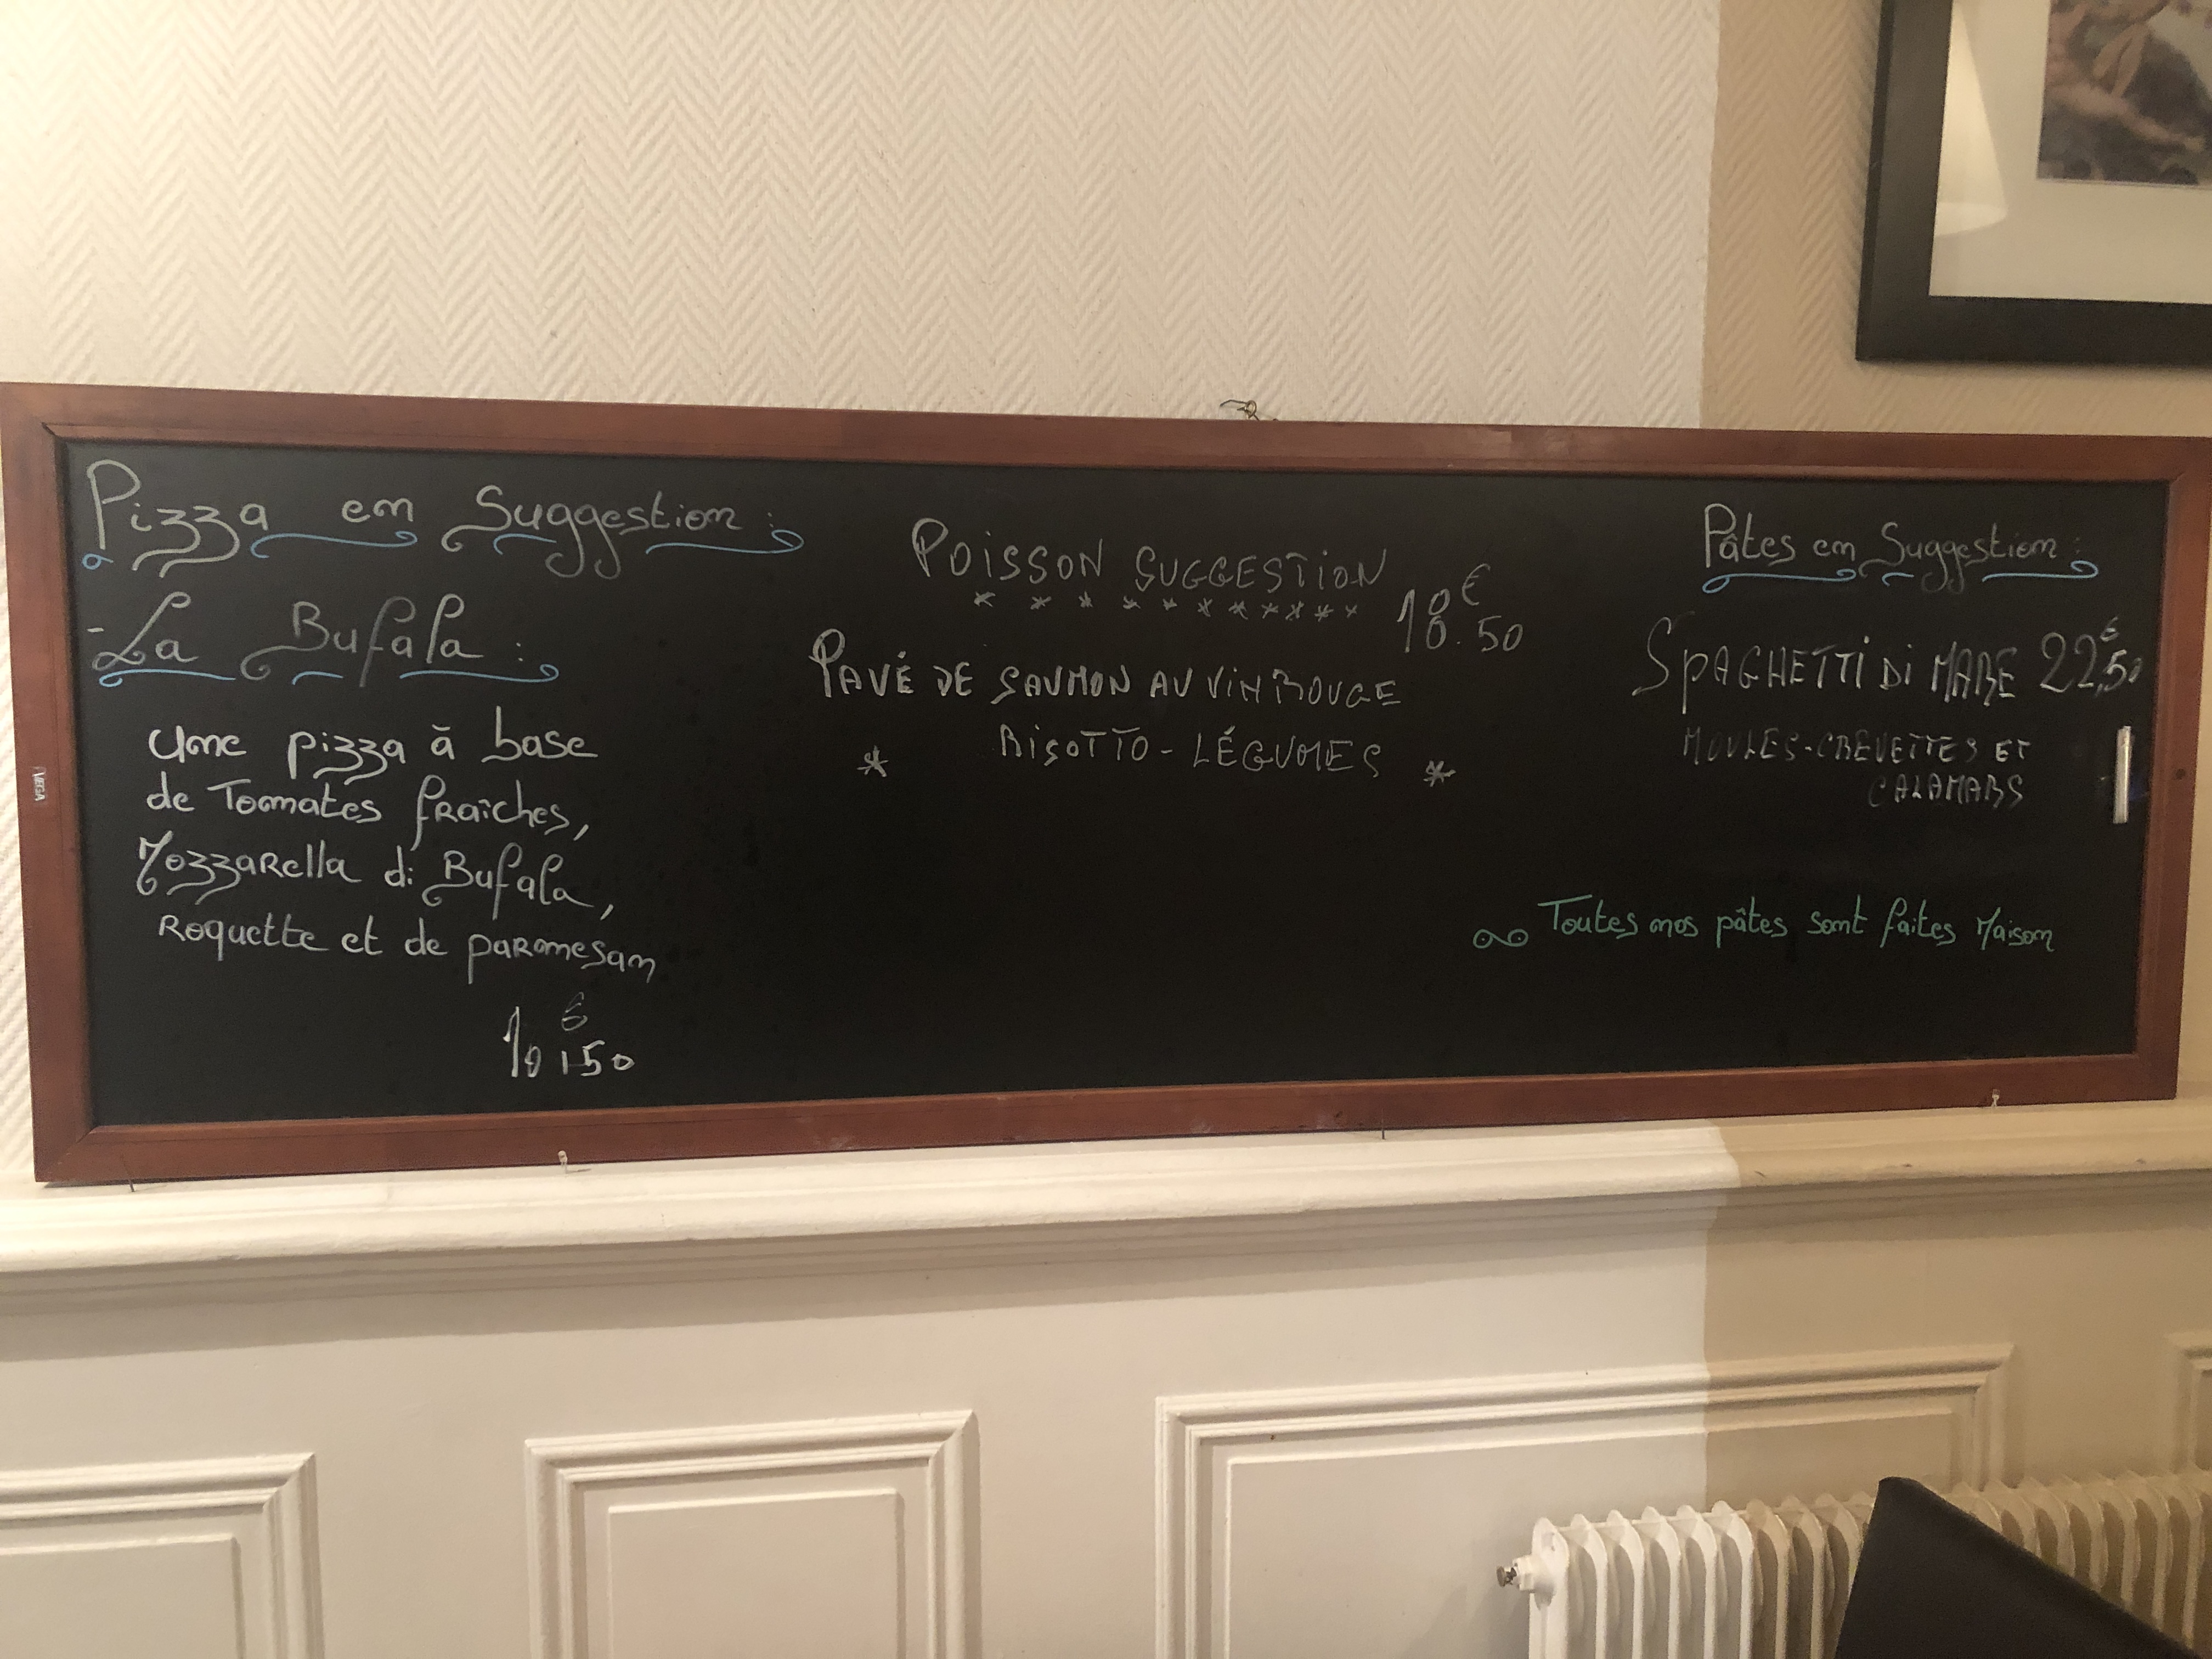 Pizza en Suggestion :
- La Bufala :
Une pizza à base
de Tomates fraîches,
Mozzarella di Bufala,
Roquette et de parmesan
€
POISSON SUGGESTION
18.50€
PAVÉ DE SAUMON AU VIN ROUGE
* RISOTTO - LÉGUMES *
Pâtes en Suggestion :
SPAGHETTI DI MARE 22,50€
MOULES-CREVETTES ET
CALAMARS
Toutes nos pâtes sont faites Maison
VEGA